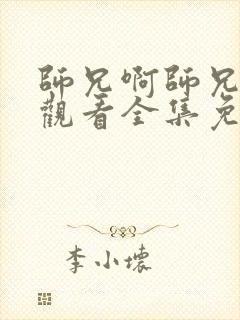 師兄啊師兄
觀看全集免
李小壞